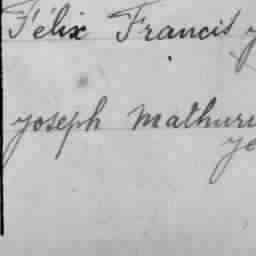 Félix Francis
Joseph Mathuri